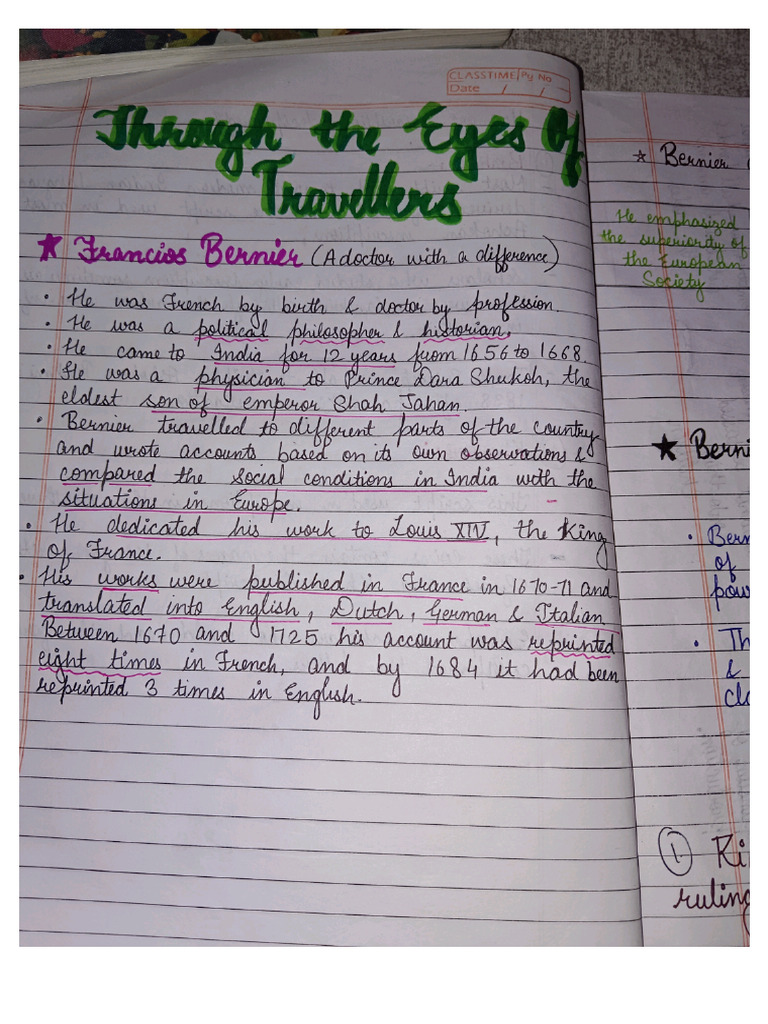 CLASSTIME Pg No
Date / /
Through the Eyes Of
Travellers
★ Francios Bernier (A doctor with a difference)
• He was French by birth & doctor by profession.
• He was a political philosopher & historian.
• He came to India for 12 years from 1656 to 1668.
• He was a physician to Prince Dara Shukoh, the
eldest son of emperor Shah Jahan.
• Bernier travelled to different parts of the country
and wrote accounts based on its own observations &
compared the social conditions in India with the
situations in Europe.
• He dedicated his work to Louis XIV, the King
of France.
• His works were published in France in 1670-71 and
translated into English, Dutch, German & Italian.
Between 1670 and 1725 his account was reprinted
eight times in French, and by 1684 it had been
reprinted 3 times in English.
★ Bernier
He emphasized
the superiority of
the European
Society
★ Berni
• Bern
of
pow
• Th
&
cla
① Ri
ruling